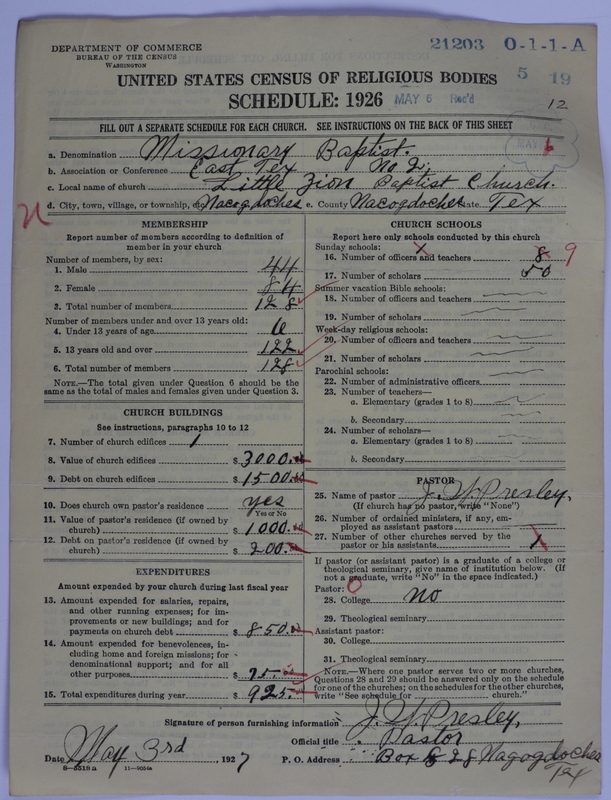 DEPARTMENT OF COMMERCE
BUREAU OF THE CENSUS
WASHINGTON
21203 O-1-1-A
5 19
UNITED STATES CENSUS OF RELIGIOUS BODIES
SCHEDULE: 1926 MAY 6 Rec'd
12
FILL OUT A SEPARATE SCHEDULE FOR EACH CHURCH. SEE INSTRUCTIONS ON THE BACK OF THIS SHEET
MAY 6
a. Denomination Missionary Baptist.
b. Association or Conference East Tex No 2.
c. Local name of church Little Zion Baptist Church.
d. City, town, village, or township, etc Nacogdoches e. County Nacogdoches State Tex
MEMBERSHIP
Report number of members according to definition of member in your church
Number of members, by sex:
1. Male 44
2. Female 84
3. Total number of members 128
Number of members under and over 13 years old:
4. Under 13 years of age 6
5. 13 years old and over 122
6. Total number of members 128
NOTE.—The total given under Question 6 should be the same as the total of males and females given under Question 3.
CHURCH BUILDINGS
See instructions, paragraphs 10 to 12
7. Number of church edifices 1
8. Value of church edifices $ 3000.00
9. Debt on church edifices $ 1500.00
10. Does church own pastor's residence yes
Yes or No
11. Value of pastor's residence (if owned by church) $ 1000.00
12. Debt on pastor's residence (if owned by church) $ 200.00
EXPENDITURES
Amount expended by your church during last fiscal year
13. Amount expended for salaries, repairs, and other running expenses; for improvements or new buildings; and for payments on church debt $ 850.00
14. Amount expended for benevolences, including home and foreign missions; for denominational support; and for all other purposes $ 75.00
15. Total expenditures during year $ 925.00
CHURCH SCHOOLS
Report here only schools conducted by this church
Sunday schools:
16. Number of officers and teachers 8 9
17. Number of scholars 50
Summer vacation Bible schools:
18. Number of officers and teachers
19. Number of scholars
Week-day religious schools:
20. Number of officers and teachers
21. Number of scholars
Parochial schools:
22. Number of administrative officers
23. Number of teachers—
a. Elementary (grades 1 to 8)
b. Secondary
24. Number of scholars—
a. Elementary (grades 1 to 8)
b. Secondary
PASTOR
25. Name of pastor J. Y. Presley,
(If church has no pastor, write "None")
26. Number of ordained ministers, if any, employed as assistant pastors
27. Number of other churches served by the pastor or his assistants 1
If pastor (or assistant pastor) is a graduate of a college or theological seminary, give name of institution below. (If not a graduate, write "No" in the space indicated.)
Pastor: 0
28. College no
29. Theological seminary
Assistant pastor:
30. College
31. Theological seminary
NOTE.—Where one pastor serves two or more churches, Questions 28 and 29 should be answered only on the schedule for one of the churches; on the schedules for the other churches, write "See schedule for church."
Signature of person furnishing information J. Y. Presley,
Official title Pastor
Date May 3rd, 1927 P. O. Address Box 528 Nagogdoches
Tex
8—5518 a 11—9554a